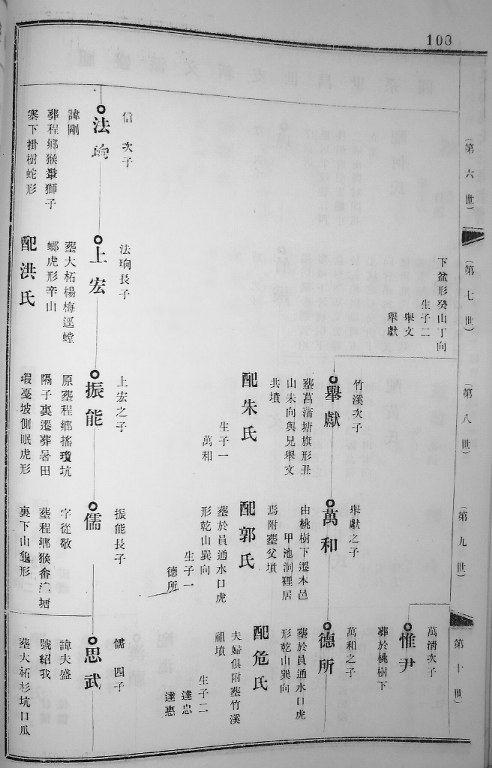 103
(第六世)
(第七世)
(第八世)
(第九世)
(第十世)
下盆形癸山丁向
生子二
舉文
舉獻
竹溪次子
舉獻
墓菖蒲塘旗形丑
山未向與兄舉文
共墳
配朱氏
生子一
萬和
舉獻之子
萬和
由桃樹下遷本邑
甲池洞貍居
焉附墓父墳
配郭氏
墓於員通水口虎
形乾山巽向
生子一
德所
萬清次子
惟尹
葬於桃樹下
萬和之子
德所
墓於員通水口虎
形乾山巽向
配危氏
夫婦俱附墓竹溪
祖墳
生子二
達忠
達惠
信次子
法珦
諱剛
葬程鄉猴獅子
寨下掛樹蛇形
法珦長子
上宏
墓大柘楊梅逕螳
螂虎形辛山
配洪氏
上宏之子
振能
原墓程鄉搖瓊坑
隔子裏遷葬暑田
蝦憂坡側眠虎形
振能長子
儒
字從敬
墓程鄉猴塘
裏下山龜形
儒四子
思武
諱夫盛
號紹我
墓大柘杉坑口瓜